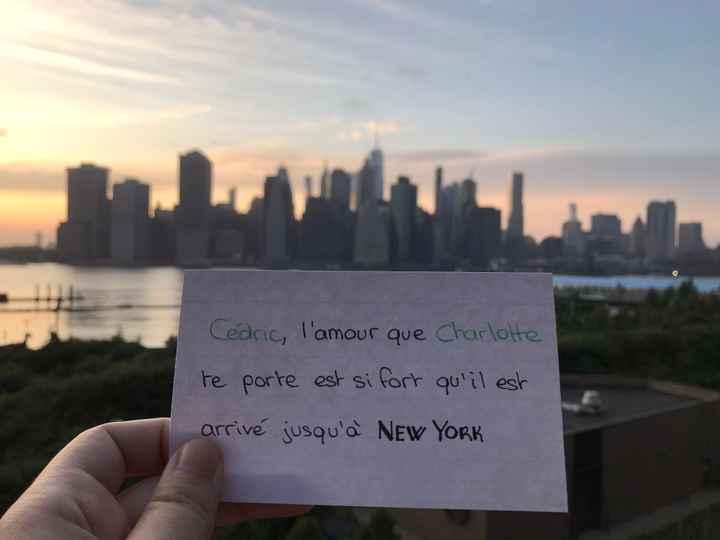 Cédric, l'amour que Charlotte
te porte est si fort qu'il est
arrivé jusqu'à NEW YORK